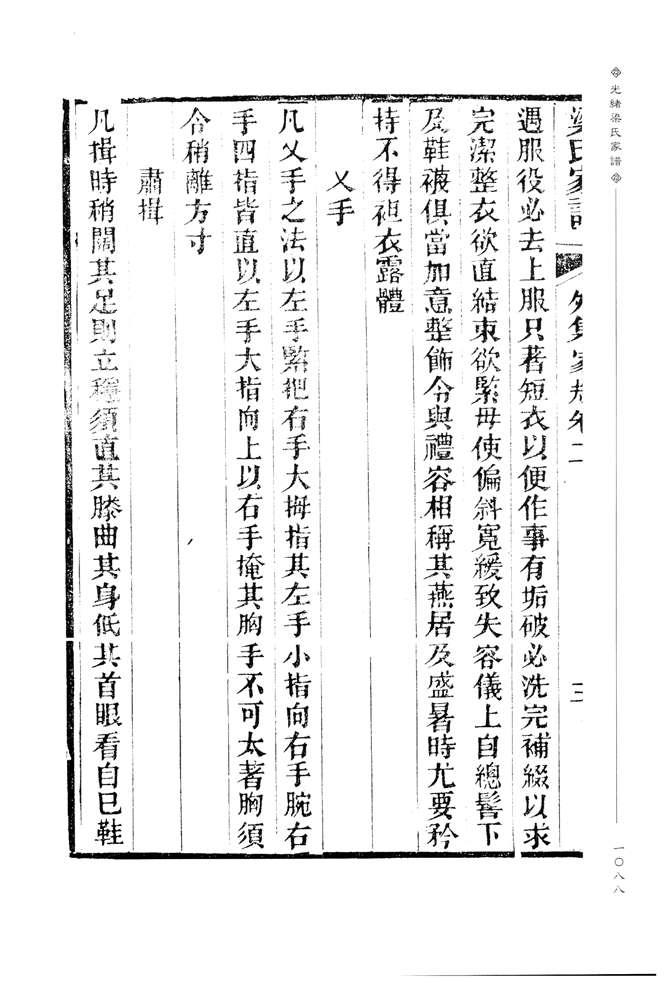 光緒梁氏家譜
一〇八八
梁氏家譜 外集家規卷二 三
遇服役必去上服只著短衣以便作事有垢破必洗完補綴以求
完潔整衣欲直結束欲緊毋使偏斜寬緩致失容儀上自總髻下
及鞋襪俱當加意整飾令與禮容相稱其燕居及盛暑時尤要矜
持不得袒衣露體
乂手
凡乂手之法以左手緊把右手大拇指其左手小指向右手腕右
手四指皆直以左手大指向上以右手掩其胸手不可太著胸須
令稍離方寸
肅揖
凡揖時稍闊其足則立穩須直其膝曲其身低其首眼看自己鞋